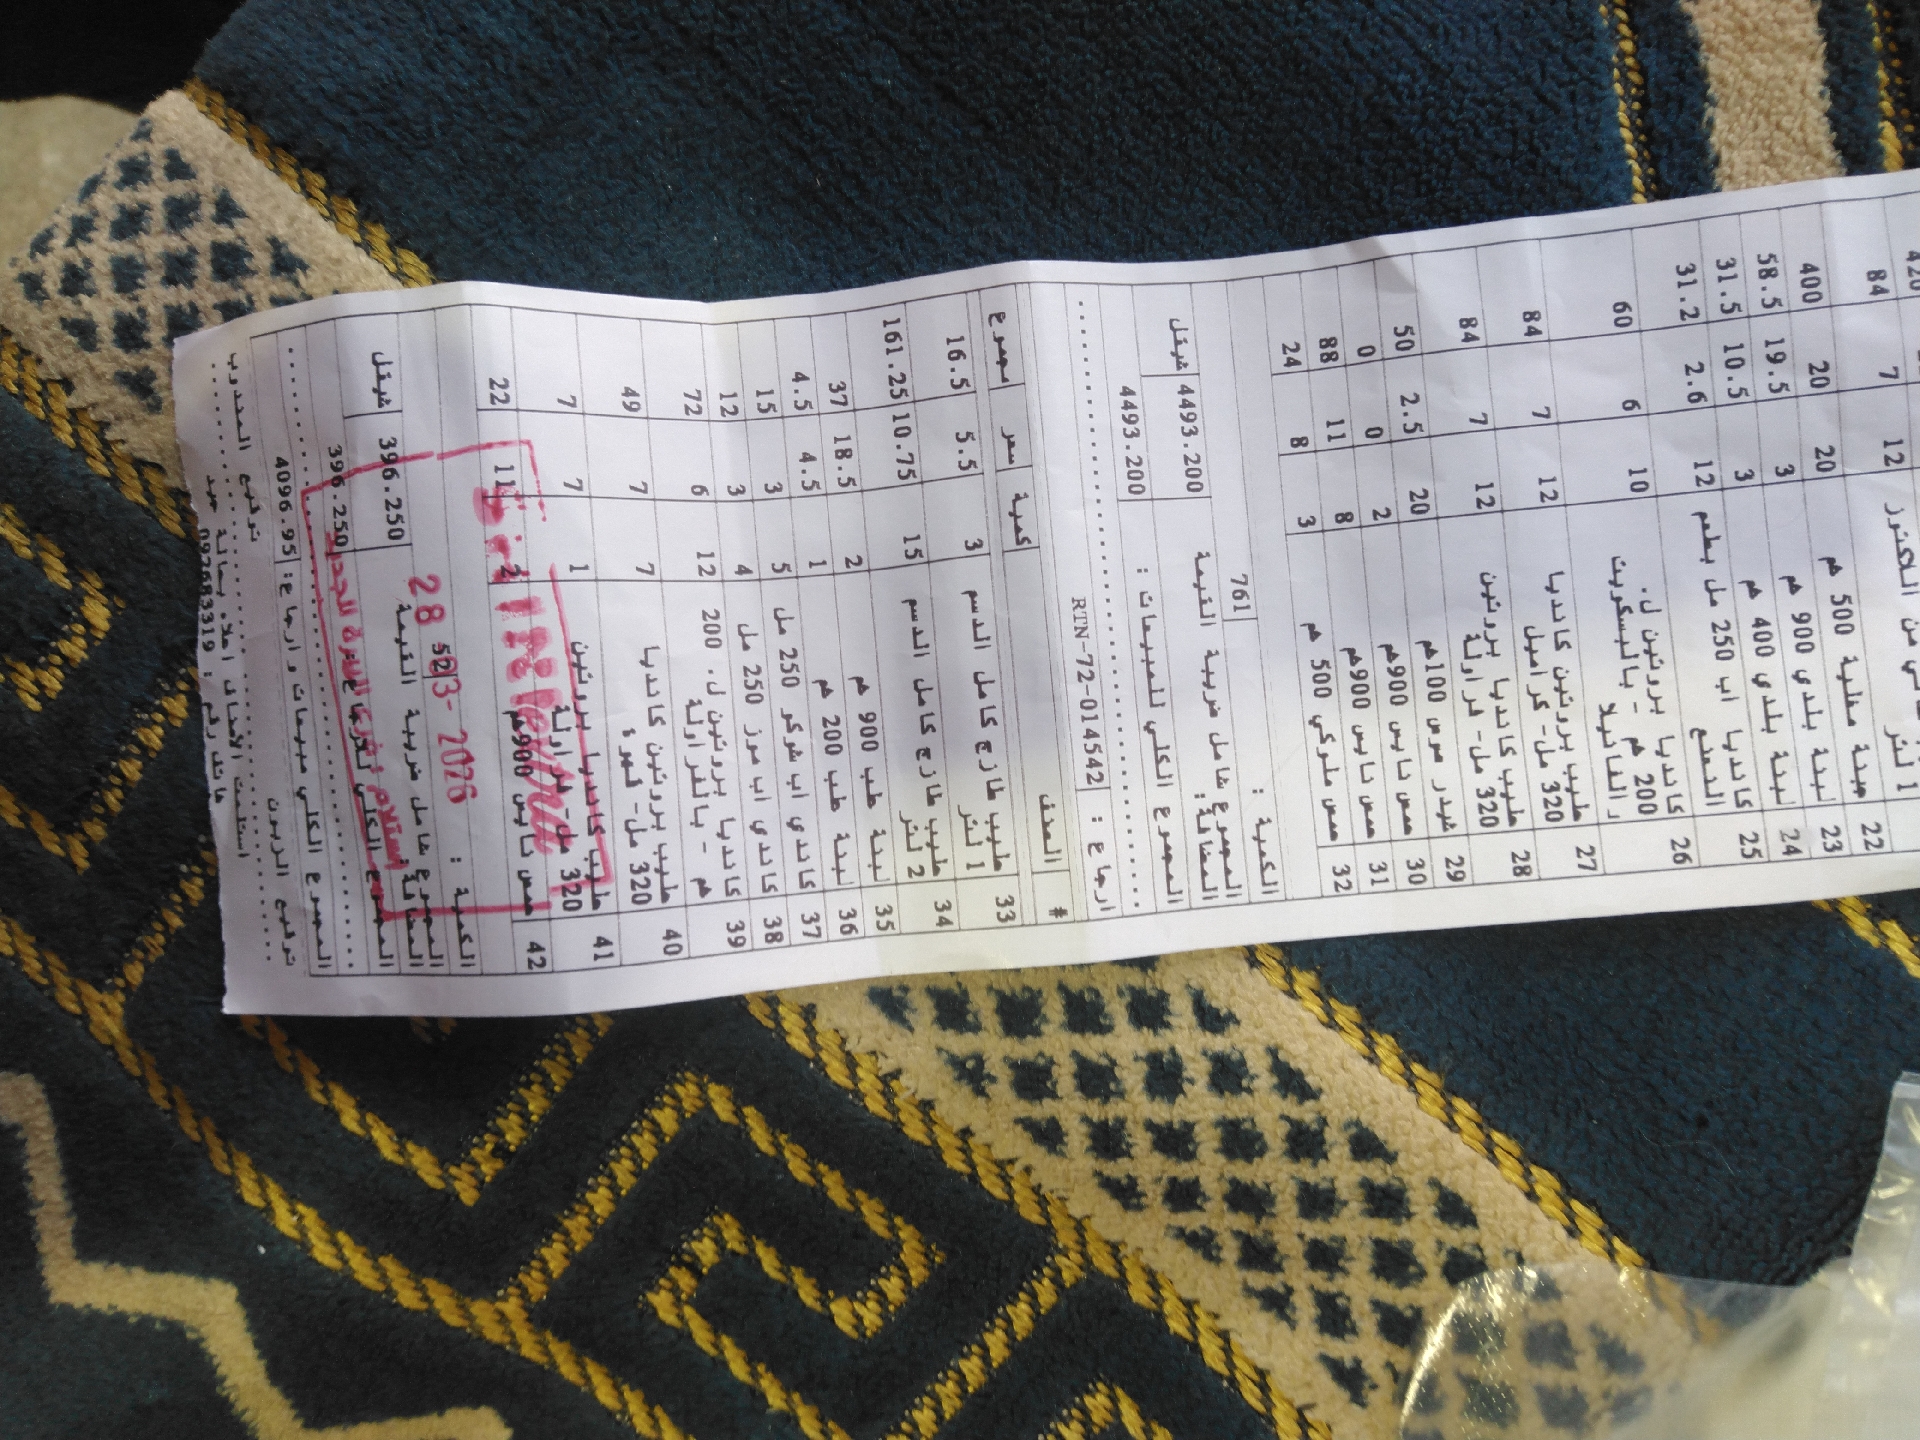 420
1 لتر 12 7 84
22 جبنة مغلية 500 غم 20 20 400
23 لبنة بلدي 900 غم 3 19.5 58.5
24 لبنة بلدي 400 غم 3 10.5 31.5
25 كانديا اب 250 مل بطعم النعنع 12 2.6 31.2
26 كانديا بروتين ل. 200 غم - بالبسكويت و الفانيلا 10 6 60
27 حليب بروتين كانديا 320 مل- كراميل 12 7 84
28 حليب كانديا بروتين 320 مل- فراولة 12 7 84
29 شيدر موس 100غم 20 2.5 50
30 حمس نايس 900غم 2 0 0
31 حمس نايس 900غم 8 11 88
32 حمس ملوكي 500 غم 3 8 24
الكمية : 761
المجموع شامل ضريبة القيمة المضافة: 4493.200 شيقل
المجموع الكلي للمبيعات : 4493.200
ارجاع : RTN-72-014542
# الصنف كمية سعر مجموع
33 حليب طازج كامل الدسم 1 لتر 3 5.5 16.5
34 حليب طازج كامل الدسم 2 لتر 15 10.75 161.25
35 لبنة طب 900 غم 2 18.5 37
36 لبنة طب 200 غم 1 4.5 4.5
37 كاندي اب شوكو 250 مل 5 3 15
38 كاندي اب موز 250 مل 4 3 12
39 كانديا بروتين ل. 200 غم - بالفراولة 12 6 72
40 حليب بروتين كانديا 320 مل- قهوة 7 7 49
41 حليب كانديا بروتين 320 مل- فراولة 1 7 7
42 حمس نايس 900غم 2 11 22
الكمية : 52
المجموع شامل ضريبة القيمة المضافة: 396.250 شيقل
المجموع الكلي للارجاع: 396.250
المجموع الكلي مبيعات و ارجاع: 4096.95
توقيع الزبون توقيع المندوب
استلمت الأصناف أعلاه بحالة جيد
هاتف رقم : 092683319
28 -03- 2026
استلام فرع